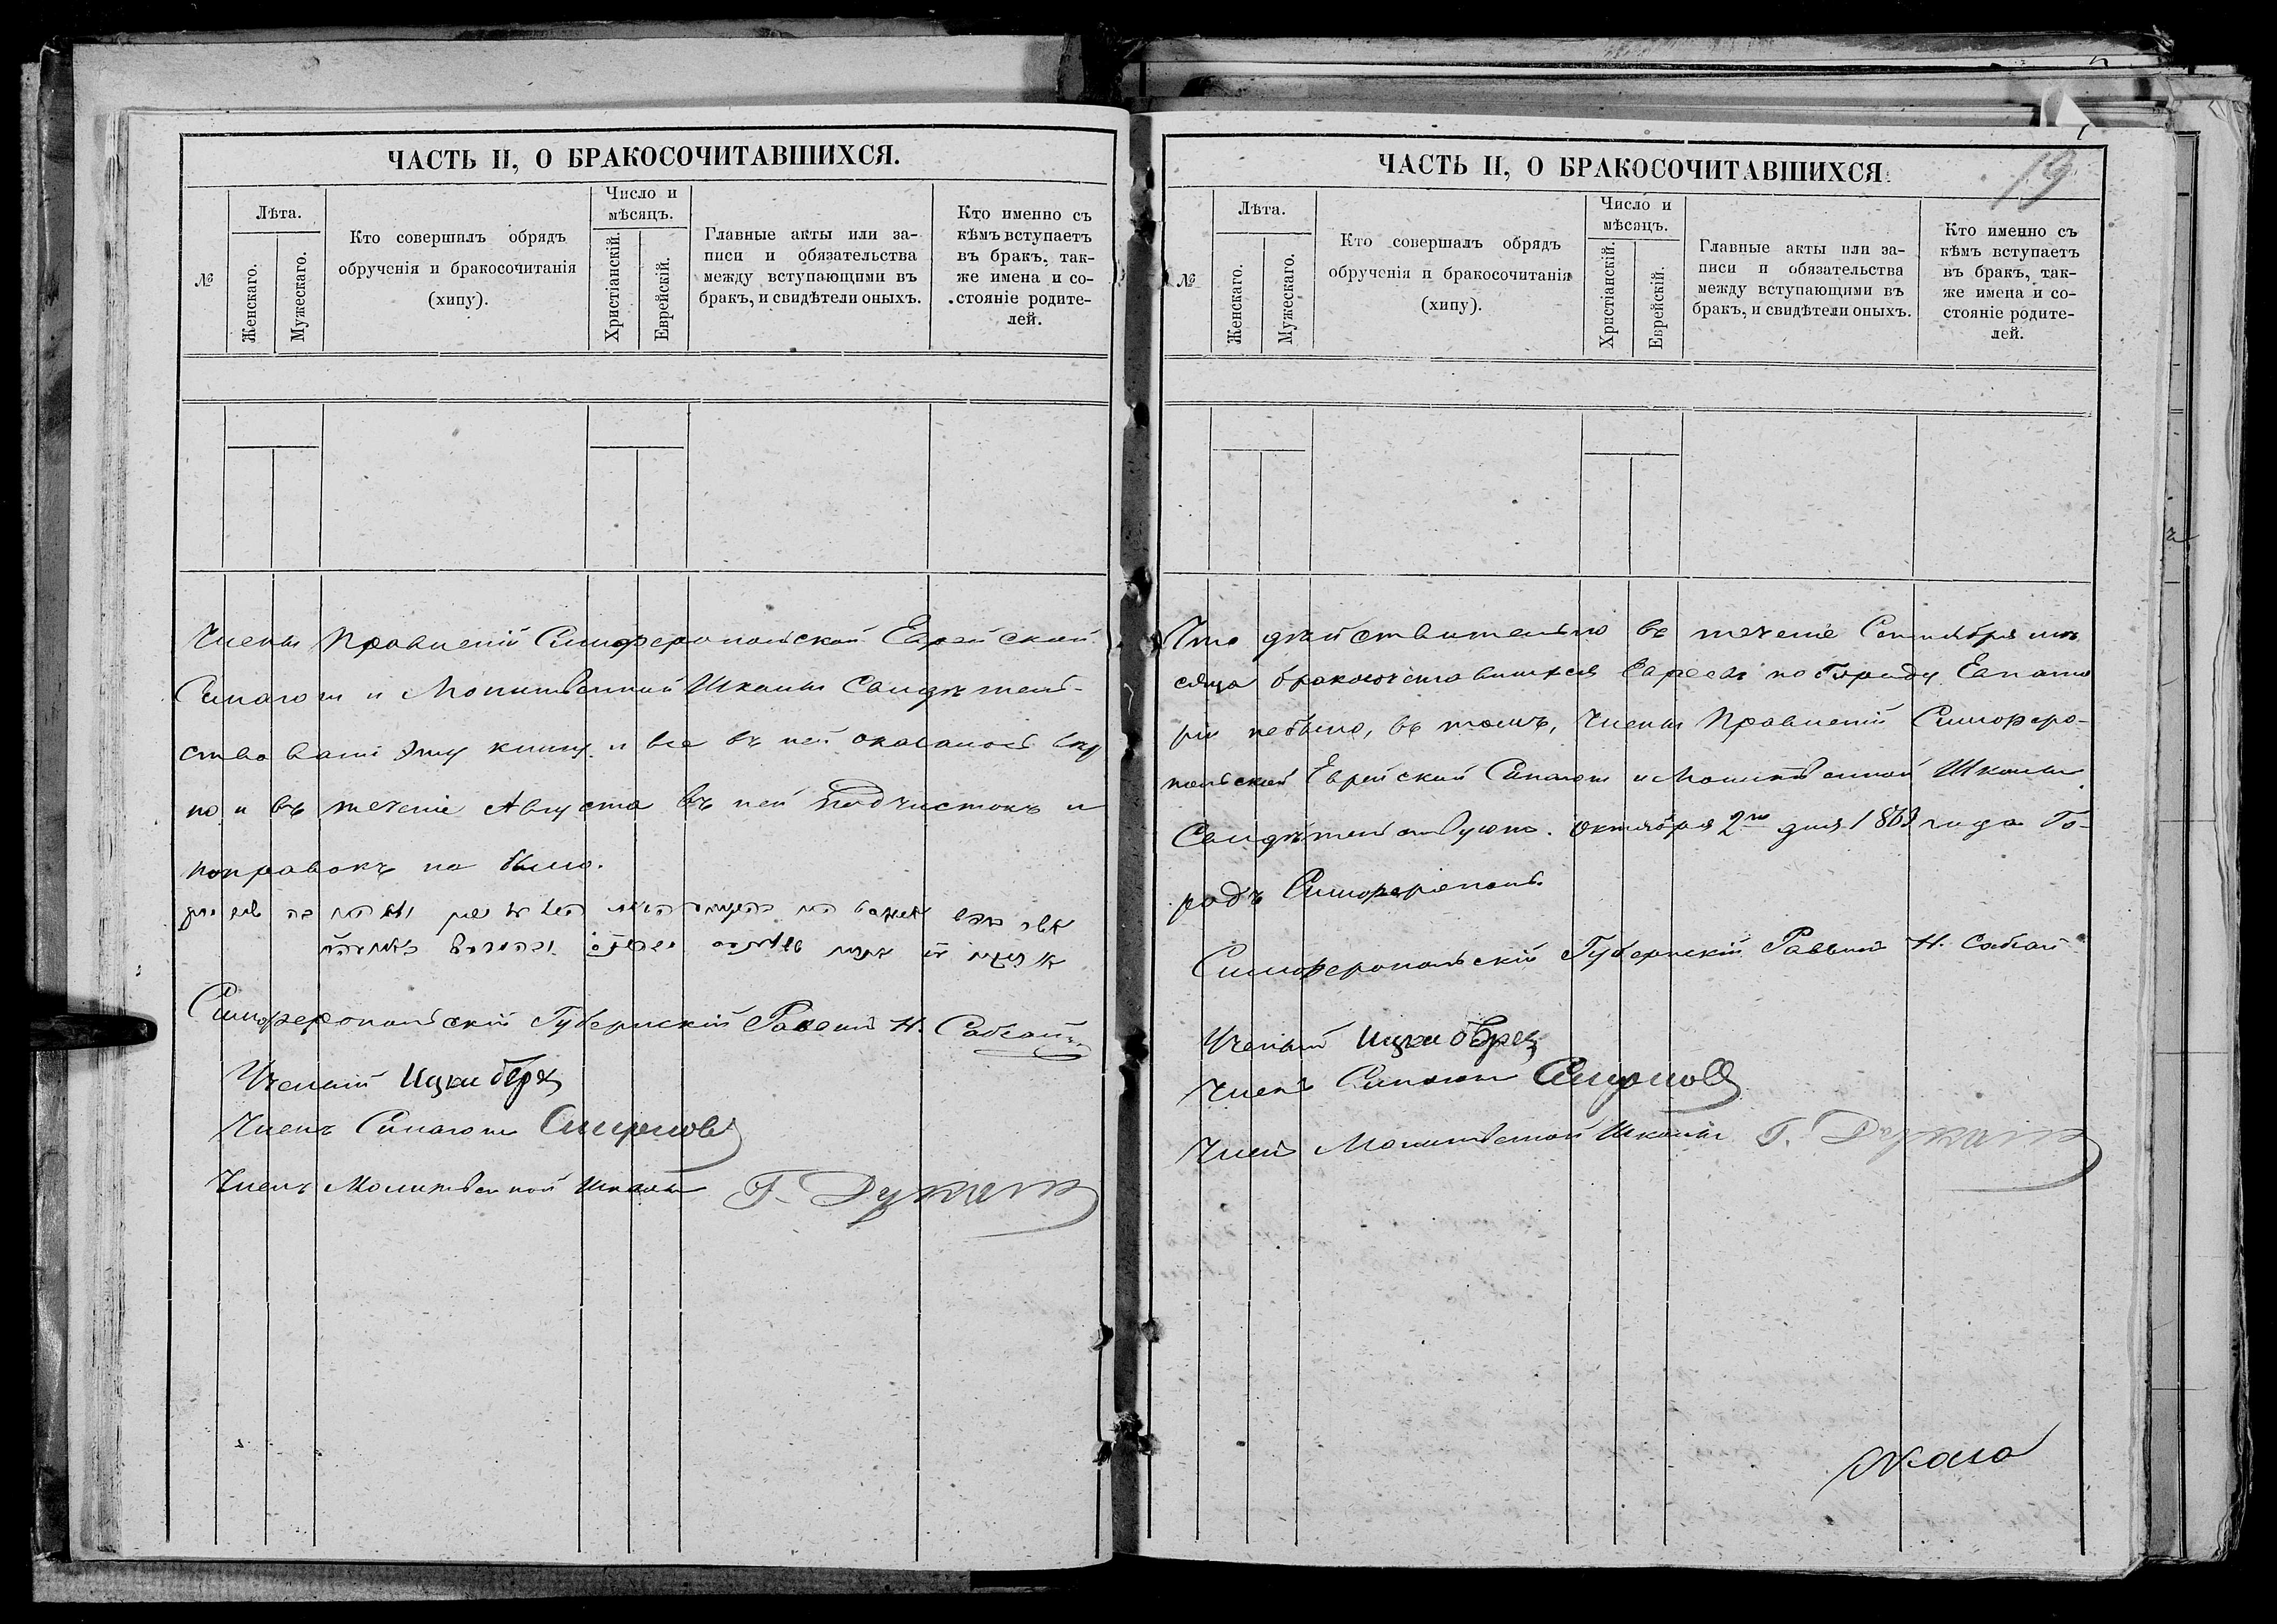 ЧАСТЬ II, О БРАКОСОЧИТАВШИХСЯ.
№
Лѣта.
Женскаго.
Мужескаго.
Кто совершалъ обрядъ
обрученія и бракосочитанія
(хипу).
Число и
мѣсяцъ.
Христіанскій.
Еврейскій.
Главные акты или за-
писи и обязательства
между вступающими въ
бракъ, и свидѣтели оныхъ.
Кто именно съ
кѣмъ вступаетъ
въ бракъ, так-
же имена и со-
стояніе родите-
лей.
Члены Правленій Симферопольской Еврейской
Синагоги и Молитвенной Школы Свидѣтель-
ствовали эту книгу и все въ ней оказалось вѣр
но и въ теченіе Августа въ ней подчистокъ и
поправокъ не было.
Симферопольскій Губернскій Раввинъ Н. Сабсай
Ученый
Членъ Синагоги Смирновъ
Членъ Молитвенной Школы Г. Дукатъ
ЧАСТЬ II, О БРАКОСОЧИТАВШИХСЯ.
19
№
Лѣта.
Женскаго.
Мужескаго.
Кто совершалъ обрядъ
обрученія и бракосочитанія
(хипу).
Число и
мѣсяцъ.
Христіанскій.
Еврейскій.
Главные акты или за-
писи и обязательства
между вступающими въ
бракъ, и свидѣтели оныхъ.
Кто именно съ
кѣмъ вступаетъ
въ бракъ, так-
же имена и со-
стояніе родите-
лей.
Что дѣйствительно въ теченіе Сентября мѣ
сяца бракосочетавшихся Евреевъ по Городу Евпато
ріи небыло, въ томъ, Члены Правленій Симферо-
польской Еврейской Синагоги и Молитвенной Школы
Свидѣтельствуютъ. Октября 2го дня 1869 года Го-
родъ Симферополь.
Симферопольскій Губернскій Раввинъ Н. Сабсай
Ученый
Членъ Синагоги Смирновъ
Членъ Молитвенной Школы Г. Дукатъ